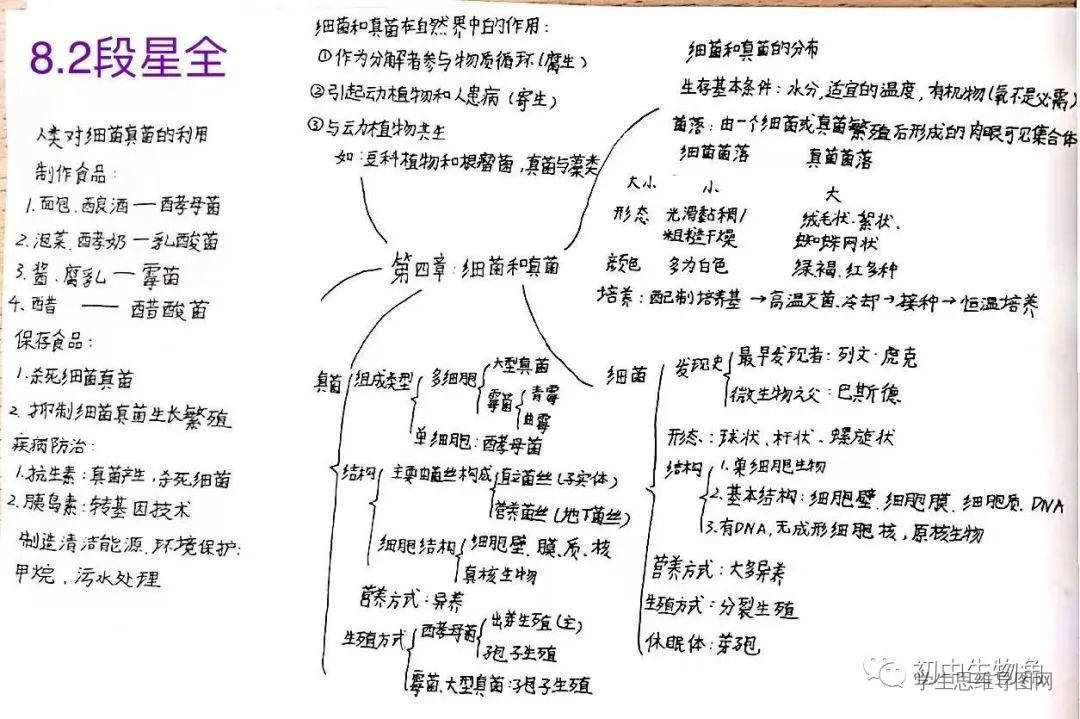 8.2段星全
细菌和真菌在自然界中的作用:
①作为分解者参与物质循环(腐生)
②引起动植物和人患病(寄生)
③与动植物共生
如:豆科植物和根瘤菌,真菌与藻类
细菌和真菌的分布
生存基本条件:水分,适宜的温度,有机物(氧不是必需)
菌落:由一个细菌或真菌繁殖后形成的肉眼可见集合体
细菌菌落 真菌菌落
大小 小 大
形态 光滑黏稠/ 绒毛状、絮状、
粗糙干燥 蜘蛛网状
颜色 多为白色 绿褐、红多种
培养:配制培养基→高温灭菌、冷却→接种→恒温培养
人类对细菌真菌的利用
制作食品:
1.面包、酿酒—酵母菌
2.泡菜、酵奶—乳酸菌
3.酱、腐乳—霉菌
4.醋——醋酸菌
保存食品:
1.杀死细菌真菌
2.抑制细菌真菌生长繁殖
疾病防治:
1.抗生素:真菌产生,杀死细菌
2.胰岛素:转基因技术
制造清洁能源、环境保护:
甲烷、污水处理
第四章:细菌和真菌
真菌
组成类型
多细胞
大型真菌
霉菌
青霉
曲霉
单细胞:酵母菌
结构
主要由菌丝构成
直立菌丝(子实体)
营养菌丝(地下菌丝)
细胞结构
细胞壁、膜、质、核
真核生物
营养方式:异养
生殖方式
酵母菌
出芽生殖(主)
孢子生殖
霉菌、大型真菌:孢子生殖
细菌
发现史
最早发现者:列文·虎克
微生物之父:巴斯德
形态:球状、杆状、螺旋状
结构
1.单细胞生物
2.基本结构:细胞壁、细胞膜、细胞质、DNA
3.有DNA,无成形细胞核,原核生物
营养方式:大多异养
生殖方式:分裂生殖
休眠体:芽孢
初中生物角
学生思维导图网